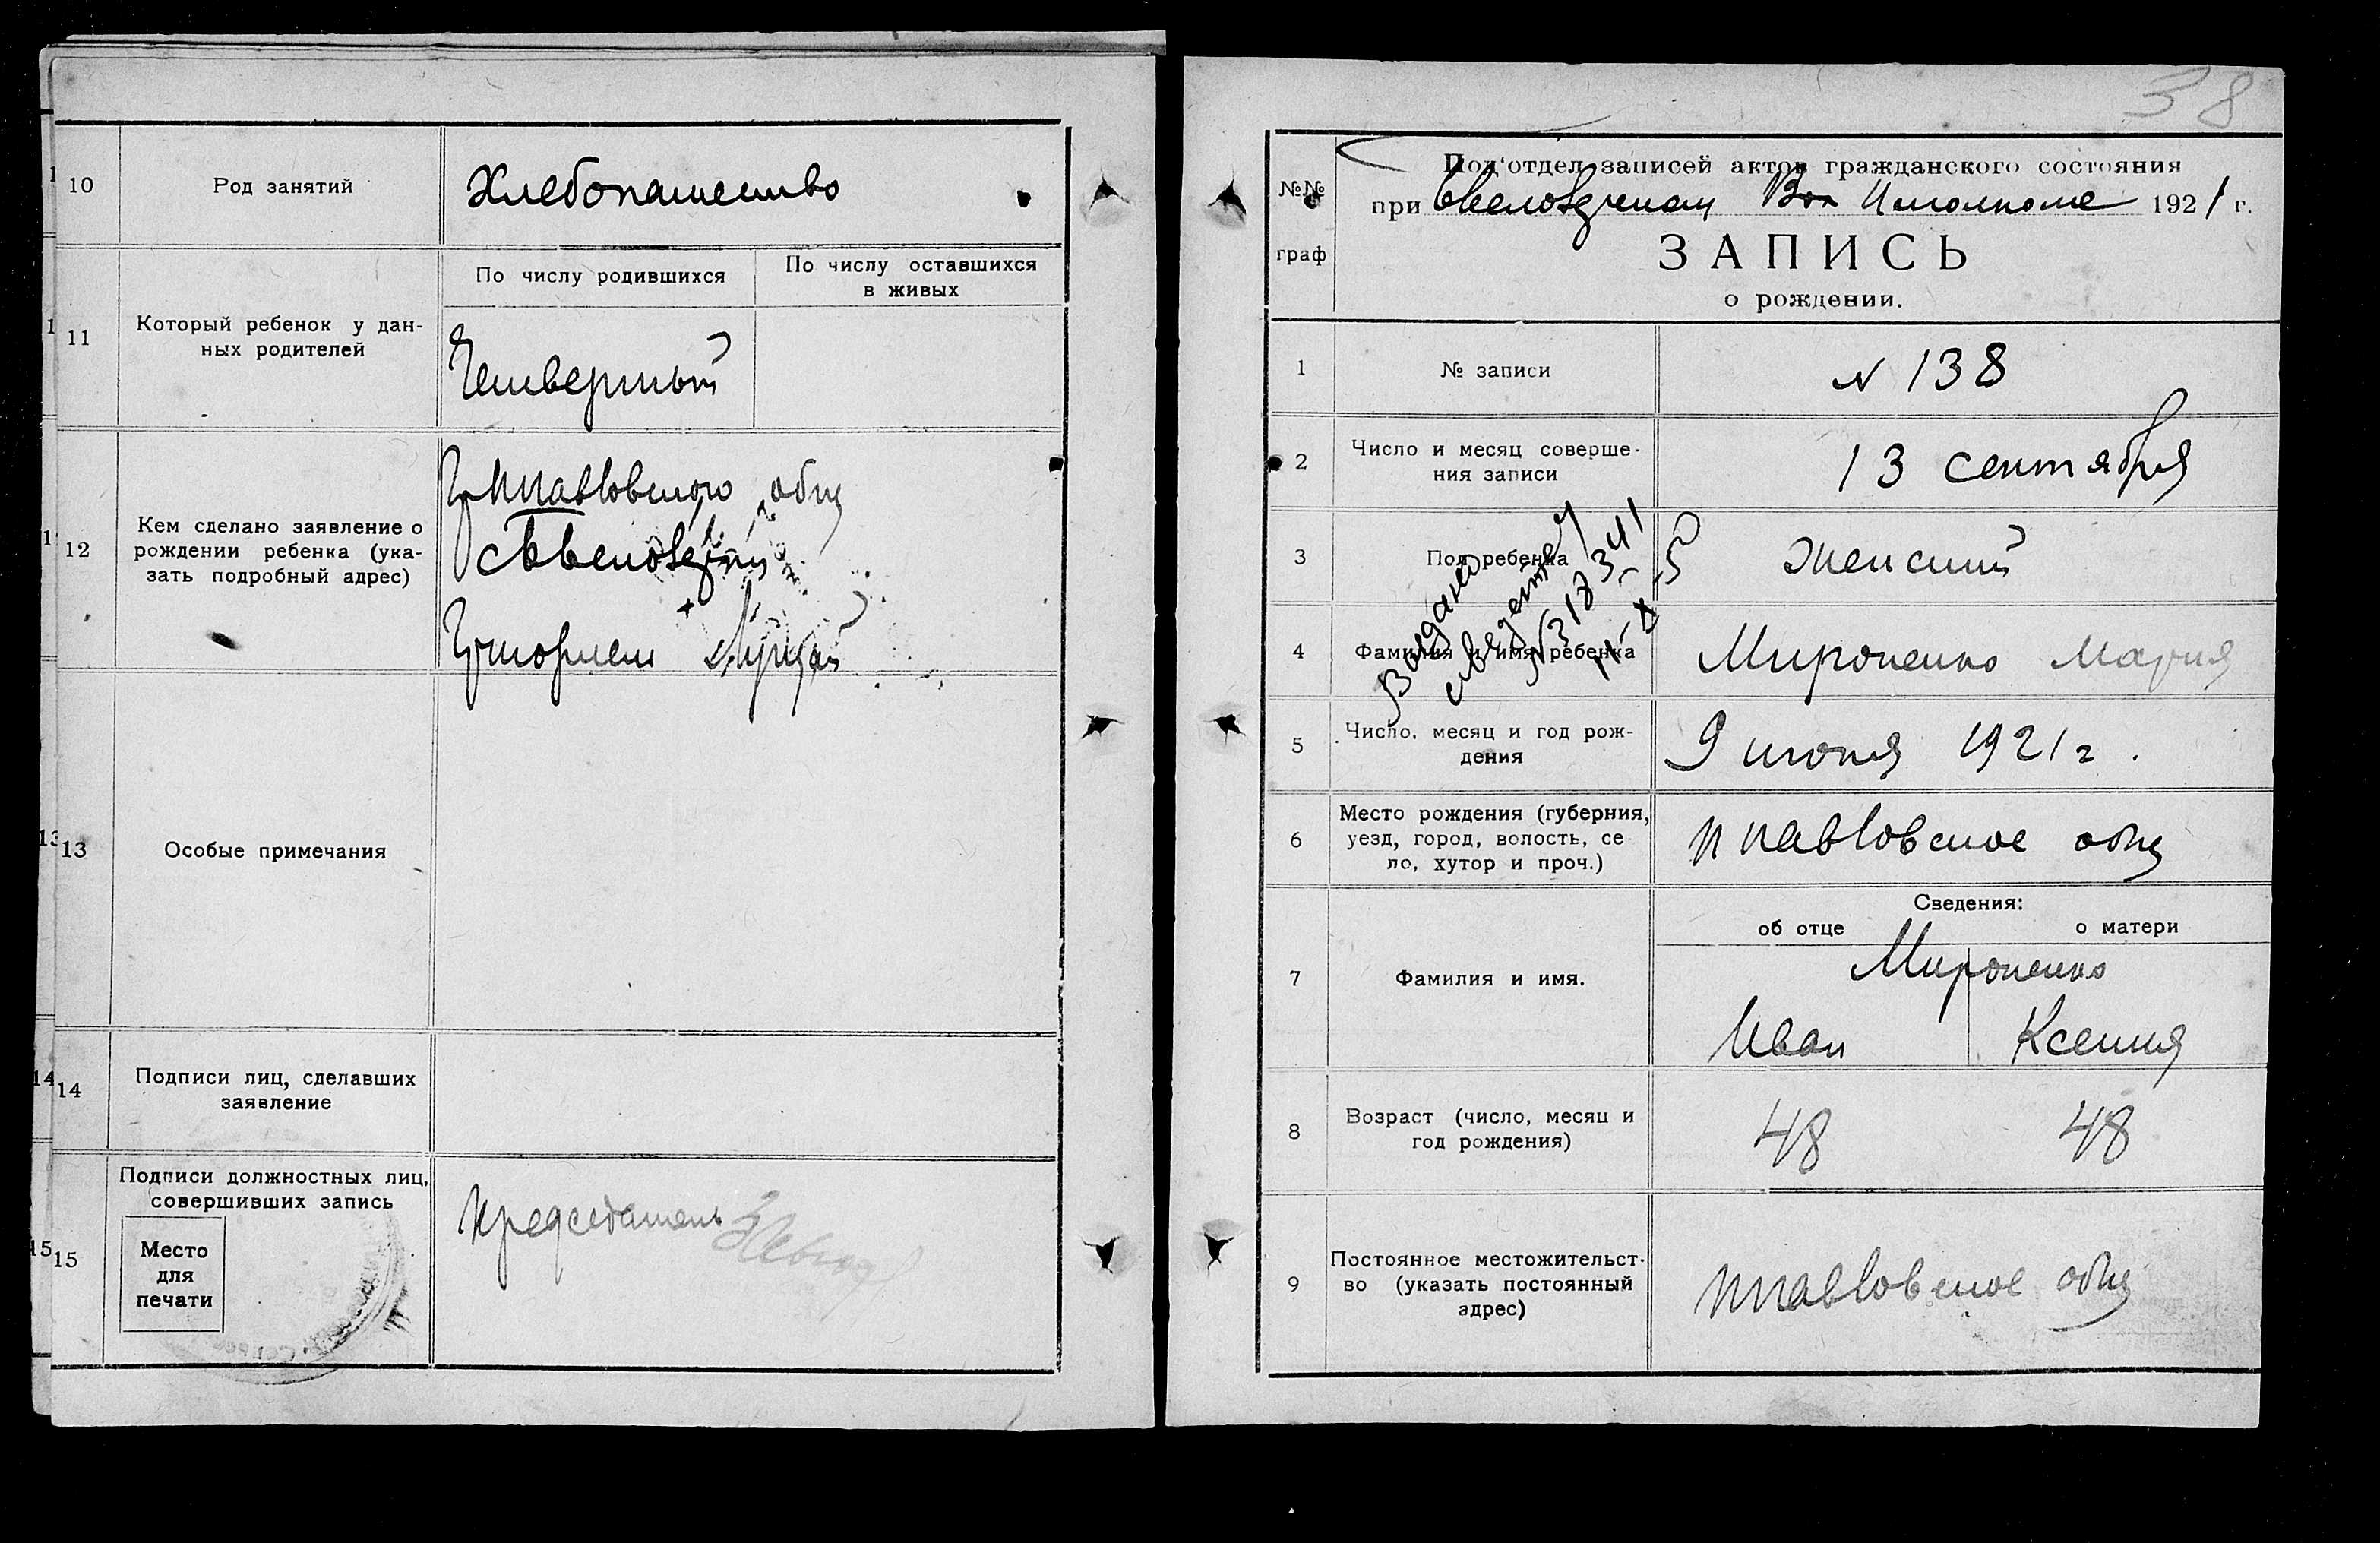 10
Род занятий
Хлебопашество
11
Который ребенок у дан-
ных родителей
По числу родившихся
По числу оставшихся
в живых
Четвертый
12
Кем сделано заявление о
рождении ребенка (ука-
зать подробный адрес)
Павловского общ
13
Особые примечания
14
Подписи лиц, сделавших
заявление
15
Подписи должностных лиц,
совершивших запись
Место
для
печати
Председатель
38
№№
граф
Под'отдел записей актов гражданского состояния
при Вол Исполкоме 1921 г.
ЗАПИСЬ
о рождении.
1
№ записи
N 138
2
Число и месяц соверше-
ния записи
13 сентября
3
Пол ребенка
Женский
4
Фамилия и имя ребенка
Мироненко Мария
Выдано
свидетел
5
Число, месяц и год рож-
дения
9 июня 1921 г.
6
Место рождения (губерния,
уезд, город, волость, се
ло, хутор и проч.)
Павловское общ
Сведения:
об отце
о матери
7
Фамилия и имя.
Мироненко
Иван
Ксения
8
Возраст (число, месяц и
год рождения)
48
48
9
Постоянное местожительст-
во (указать постоянный
адрес)
Павловское общ